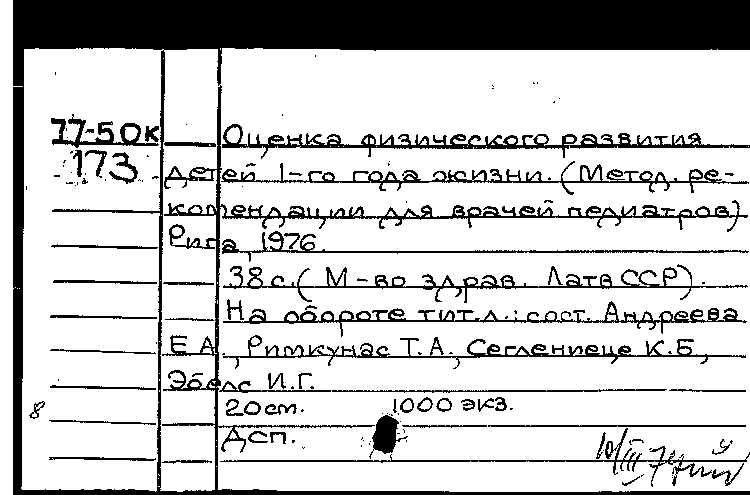 77-50к
173
Оценка физического развития
детей 1-го года жизни. (Метод. ре-
комендации для врачей педиатров)
Рига, 1976.
38 с. (М-во здрав. Латв ССР).
На обороте тит.л.: сост. Андреева
Е.А., Римкунас Т.А., Сеглениеце К.Б.,
Эбелс И.Г.
20 см. 1000 экз.
8
Дсп.
10/III